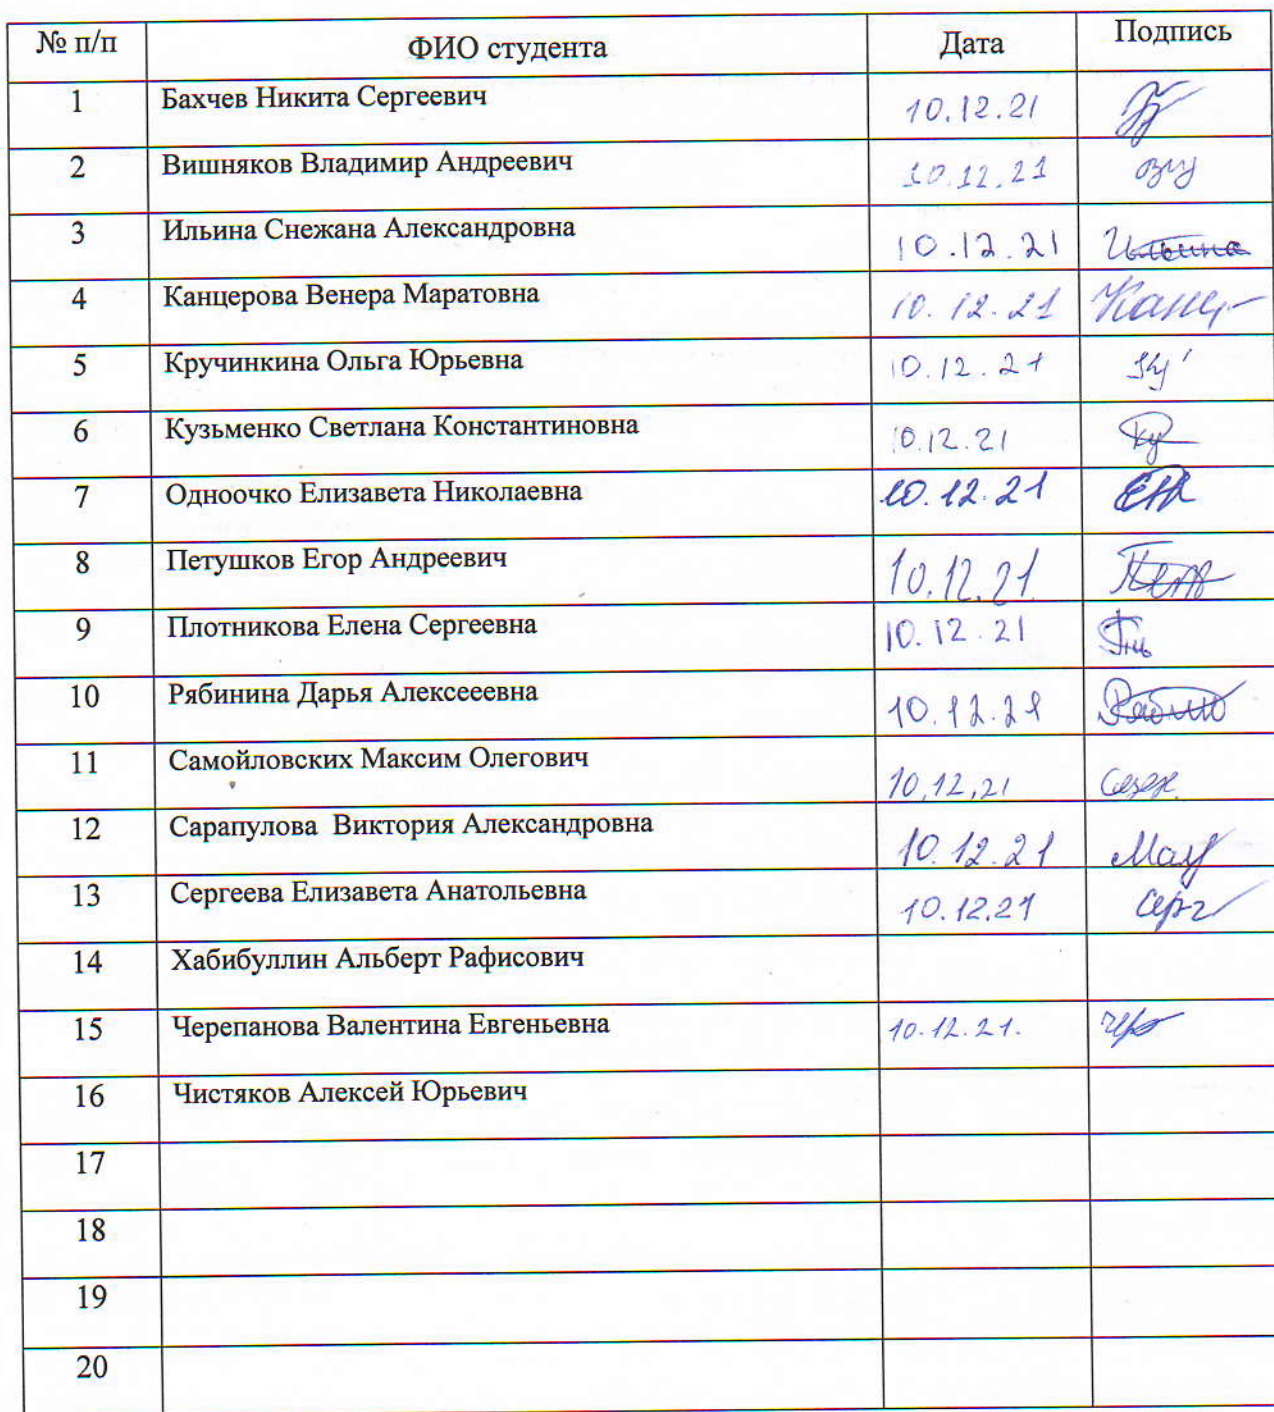 № п/п ФИО студента Дата Подпись
1 Бахчев Никита Сергеевич 10.12.21
2 Вишняков Владимир Андреевич 10.12.21
3 Ильина Снежана Александровна 10.12.21 Ильина
4 Канцерова Венера Маратовна 10.12.21 Канц
5 Кручинкина Ольга Юрьевна 10.12.21
6 Кузьменко Светлана Константиновна 10.12.21
7 Одноочко Елизавета Николаевна 10.12.21
8 Петушков Егор Андреевич 10.12.21
9 Плотникова Елена Сергеевна 10.12.21
10 Рябинина Дарья Алексееевна 10.12.21
11 Самойловских Максим Олегович 10.12.21
12 Сарапулова Виктория Александровна 10.12.21
13 Сергеева Елизавета Анатольевна 10.12.21 Серг
14 Хабибуллин Альберт Рафисович
15 Черепанова Валентина Евгеньевна 10.12.21.
16 Чистяков Алексей Юрьевич
17
18
19
20